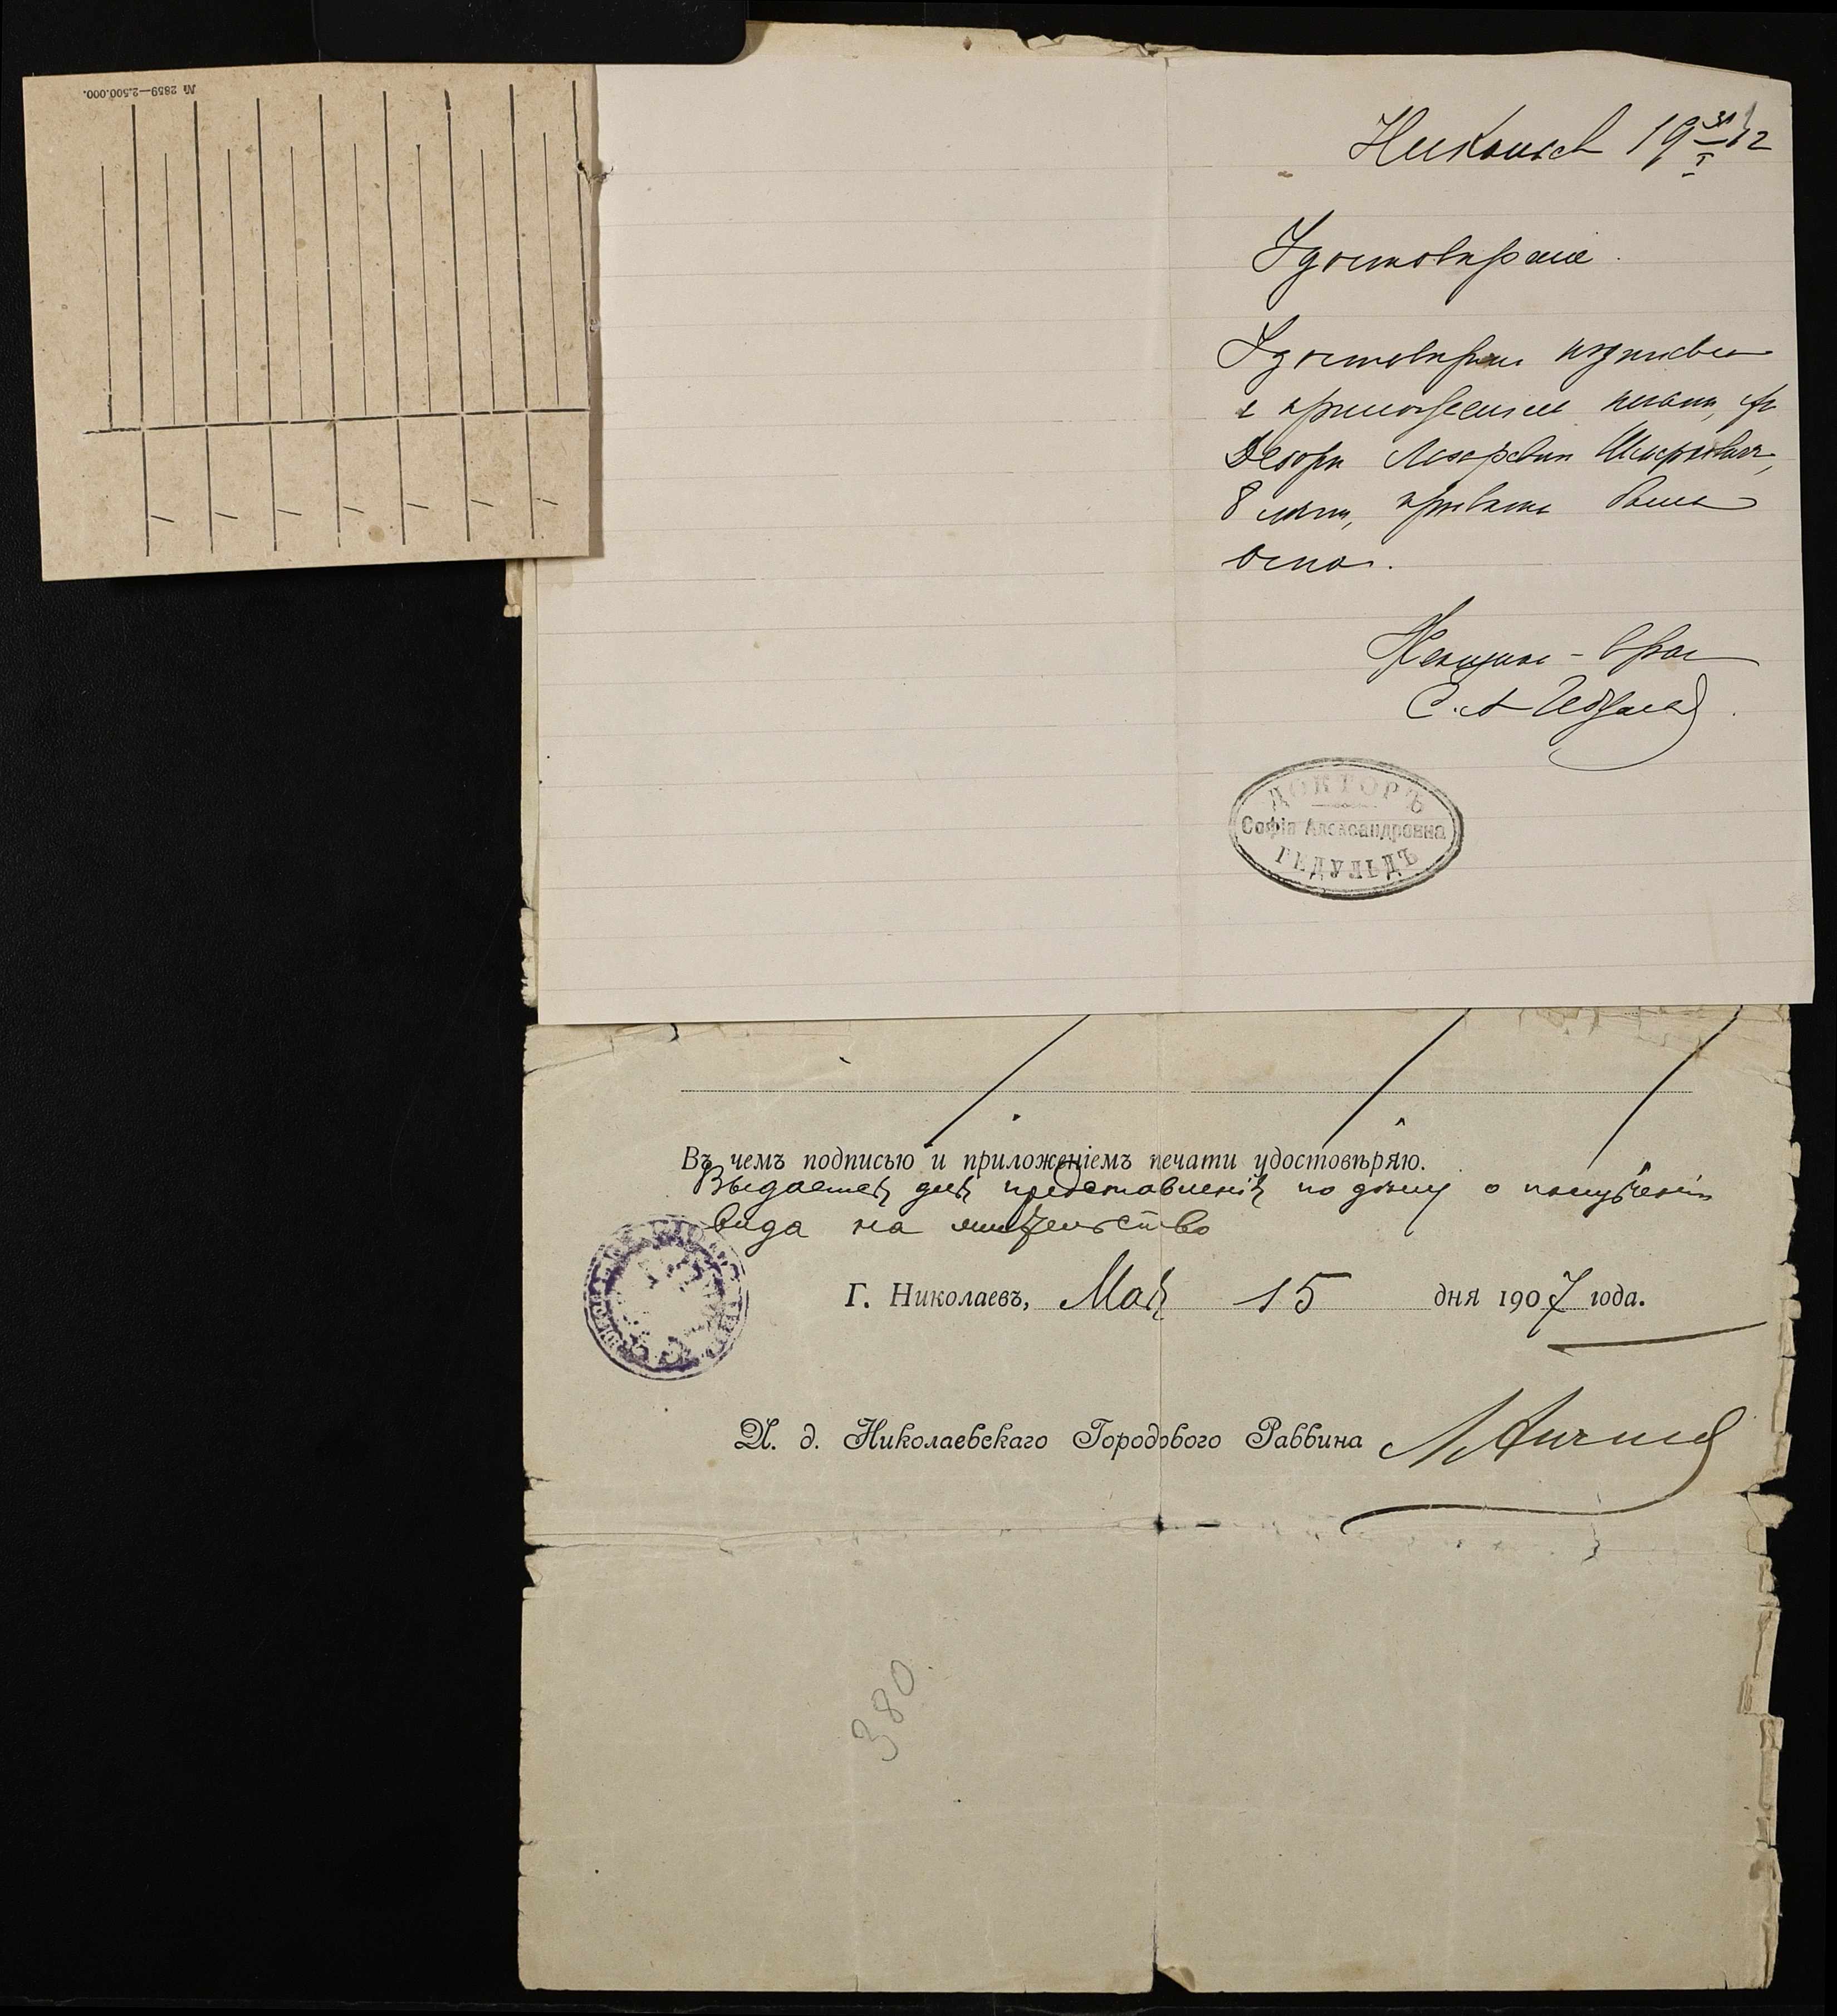 № 2859—2.500.000.
Николаев 19 31/I 12
Удостоверение.
Удостоверяю подписью
и приложением печати, что
Деборе Лазаревне
8 лет, привита была
оспа.
Женщина-врач
С. А. Гедульд
ДОКТОРЪ
Софія Александровна
ГЕДУЛЬДЪ
Въ чемъ подписью и приложеніемъ печати удостовѣряю.
Выдается для представленія по дѣлу о полученіи
вида на жительство
Г. Николаевъ, Мая 15 дня 1907 года.
И. д. Николаевскаго Городового Раввина
380.